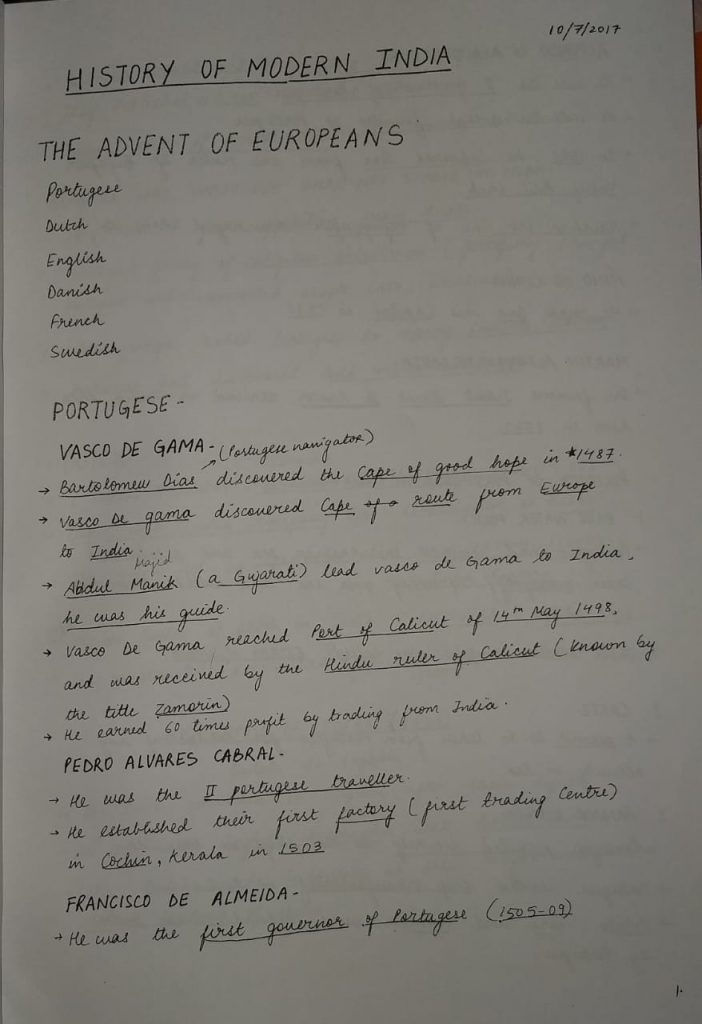 10/7/2017
HISTORY OF MODERN INDIA
THE ADVENT OF EUROPEANS
Portugese
Dutch
English
Danish
French
Swedish
PORTUGESE -
VASCO DE GAMA - (Portugese navigator)
→ Bartolomew Dias discovered the Cape of good hope in *1487.
→ Vasco De gama discovered Cape of route from Europe
to India.
Majid
→ Abdul Manik (a Gujarati) lead vasco de Gama to India,
he was his guide.
→ Vasco De Gama reached Port of Calicut of 14th May 1498,
and was received by the Hindu ruler of Calicut (known by
the title Zamorin)
→ He earned 60 times profit by trading from India.
PEDRO ALVARES CABRAL -
→ He was the II portugese traveller.
→ He established their first factory (first trading Centre)
in Cochin, Kerala in 1503
FRANCISCO DE ALMEIDA -
→ He was the first governor of Portugese (1505-09)
1.